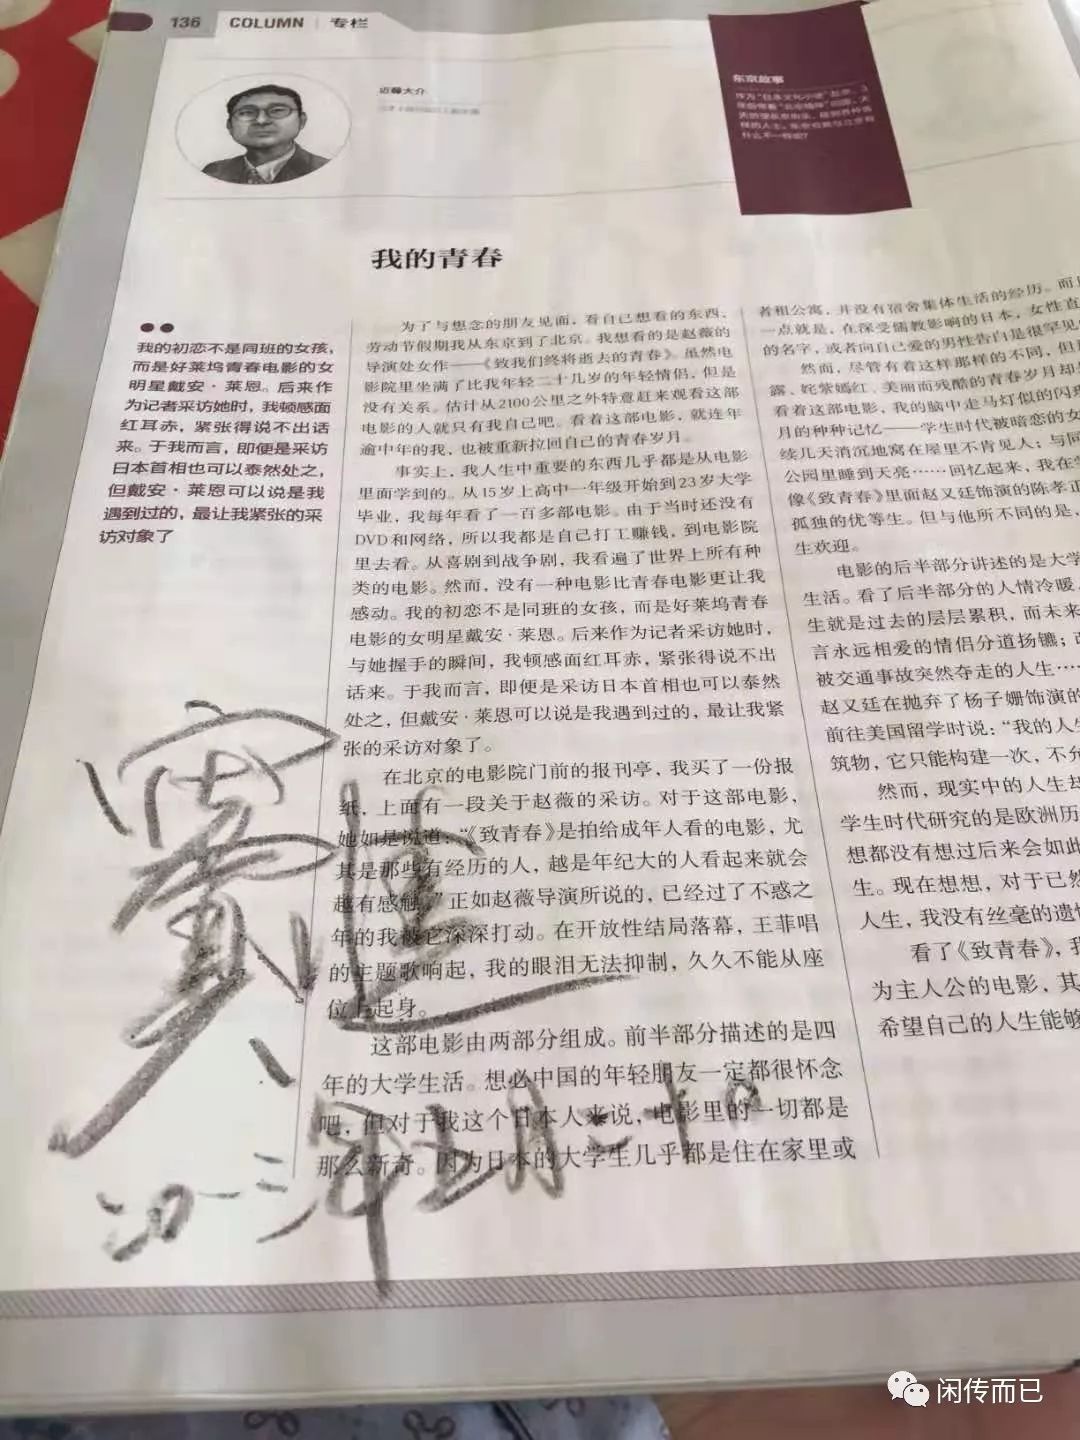 136 COLUMN | 专栏
近藤大介
东京故事
我的青春
我的初恋不是同班的女孩，
而是好莱坞青春电影的女
明星戴安·莱恩。后来作
为记者采访她时，我顿感面
红耳赤，紧张得说不出话
来。于我而言，即便是采访
日本首相也可以泰然处之，
但戴安·莱恩可以说是我
遇到过的，最让我紧张的采
访对象了
为了与想念的朋友见面，看自己想看的东西，
劳动节假期我从东京到了北京。我想看的是赵薇的
导演处女作——《致我们终将逝去的青春》。虽然电
影院里坐满了比我年轻二十几岁的年轻情侣，但是
没有关系。估计从2100公里之外特意赶来观看这部
电影的人就只有我自己吧。看着这部电影，就连年
逾中年的我，也被重新拉回自己的青春岁月。
事实上，我人生中重要的东西几乎都是从电影
里面学到的。从15岁上高中一年级开始到23岁大学
毕业，我每年看了一百多部电影。由于当时还没有
DVD和网络，所以我都是自己打工赚钱，到电影院
里去看。从喜剧到战争剧，我看遍了世界上所有种
类的电影。然而，没有一种电影比青春电影更让我
感动。我的初恋不是同班的女孩，而是好莱坞青春
电影的女明星戴安·莱恩。后来作为记者采访她时，
与她握手的瞬间，我顿感面红耳赤，紧张得说不出
话来。于我而言，即便是采访日本首相也可以泰然
处之，但戴安·莱恩可以说是我遇到过的，最让我紧
张的采访对象了。
在北京的电影院门前的报刊亭，我买了一份报
纸，上面有一段关于赵薇的采访。对于这部电影，
她如是说道：“《致青春》是拍给成年人看的电影，尤
其是那些有经历的人，越是年纪大的人看起来就会
越有感触。”正如赵薇导演所说的，已经过了不惑之
年的我被它深深打动。在开放性结局落幕，王菲唱
的主题歌响起，我的眼泪无法抑制，久久不能从座
位上起身。
这部电影由两部分组成。前半部分描述的是四
年的大学生活。想必中国的年轻朋友一定都很怀念
吧，但对于我这个日本人来说，电影里的一切都是
那么新奇。因为日本的大学生几乎都是住在家里或
者租公寓，并没有宿舍集体生活的经历。而
一点就是，在深受儒教影响的日本，女性直
的名字，或者向自己爱的男性告白是很罕见
然而，尽管有着这样那样的不同，但
露、姹紫嫣红、美丽而残酷的青春岁月却
看着这部电影，我的脑中走马灯似的闪现
月的种种记忆——学生时代被暗恋的女
续几天消沉地窝在屋里不肯见人；与同
公园里睡到天亮……回忆起来，我在学
像《致青春》里面赵又廷饰演的陈孝正
孤独的优等生。但与他所不同的是，
生欢迎。
电影的后半部分讲述的是大学
生活。看了后半部分的人情冷暖，
生就是过去的层层累积，而未来
言永远相爱的情侣分道扬镳；
被交通事故突然夺走的人生……
赵又廷在抛弃了杨子姗饰演的
前往美国留学时说：“我的人生
筑物，它只能构建一次，不允
然而，现实中的人生却
学生时代研究的是欧洲历
想都没有想过后来会如此
生。现在想想，对于已然
人生，我没有丝毫的遗憾
看了《致青春》，我
为主人公的电影，其
希望自己的人生能够
二〇一三年
闲传而已